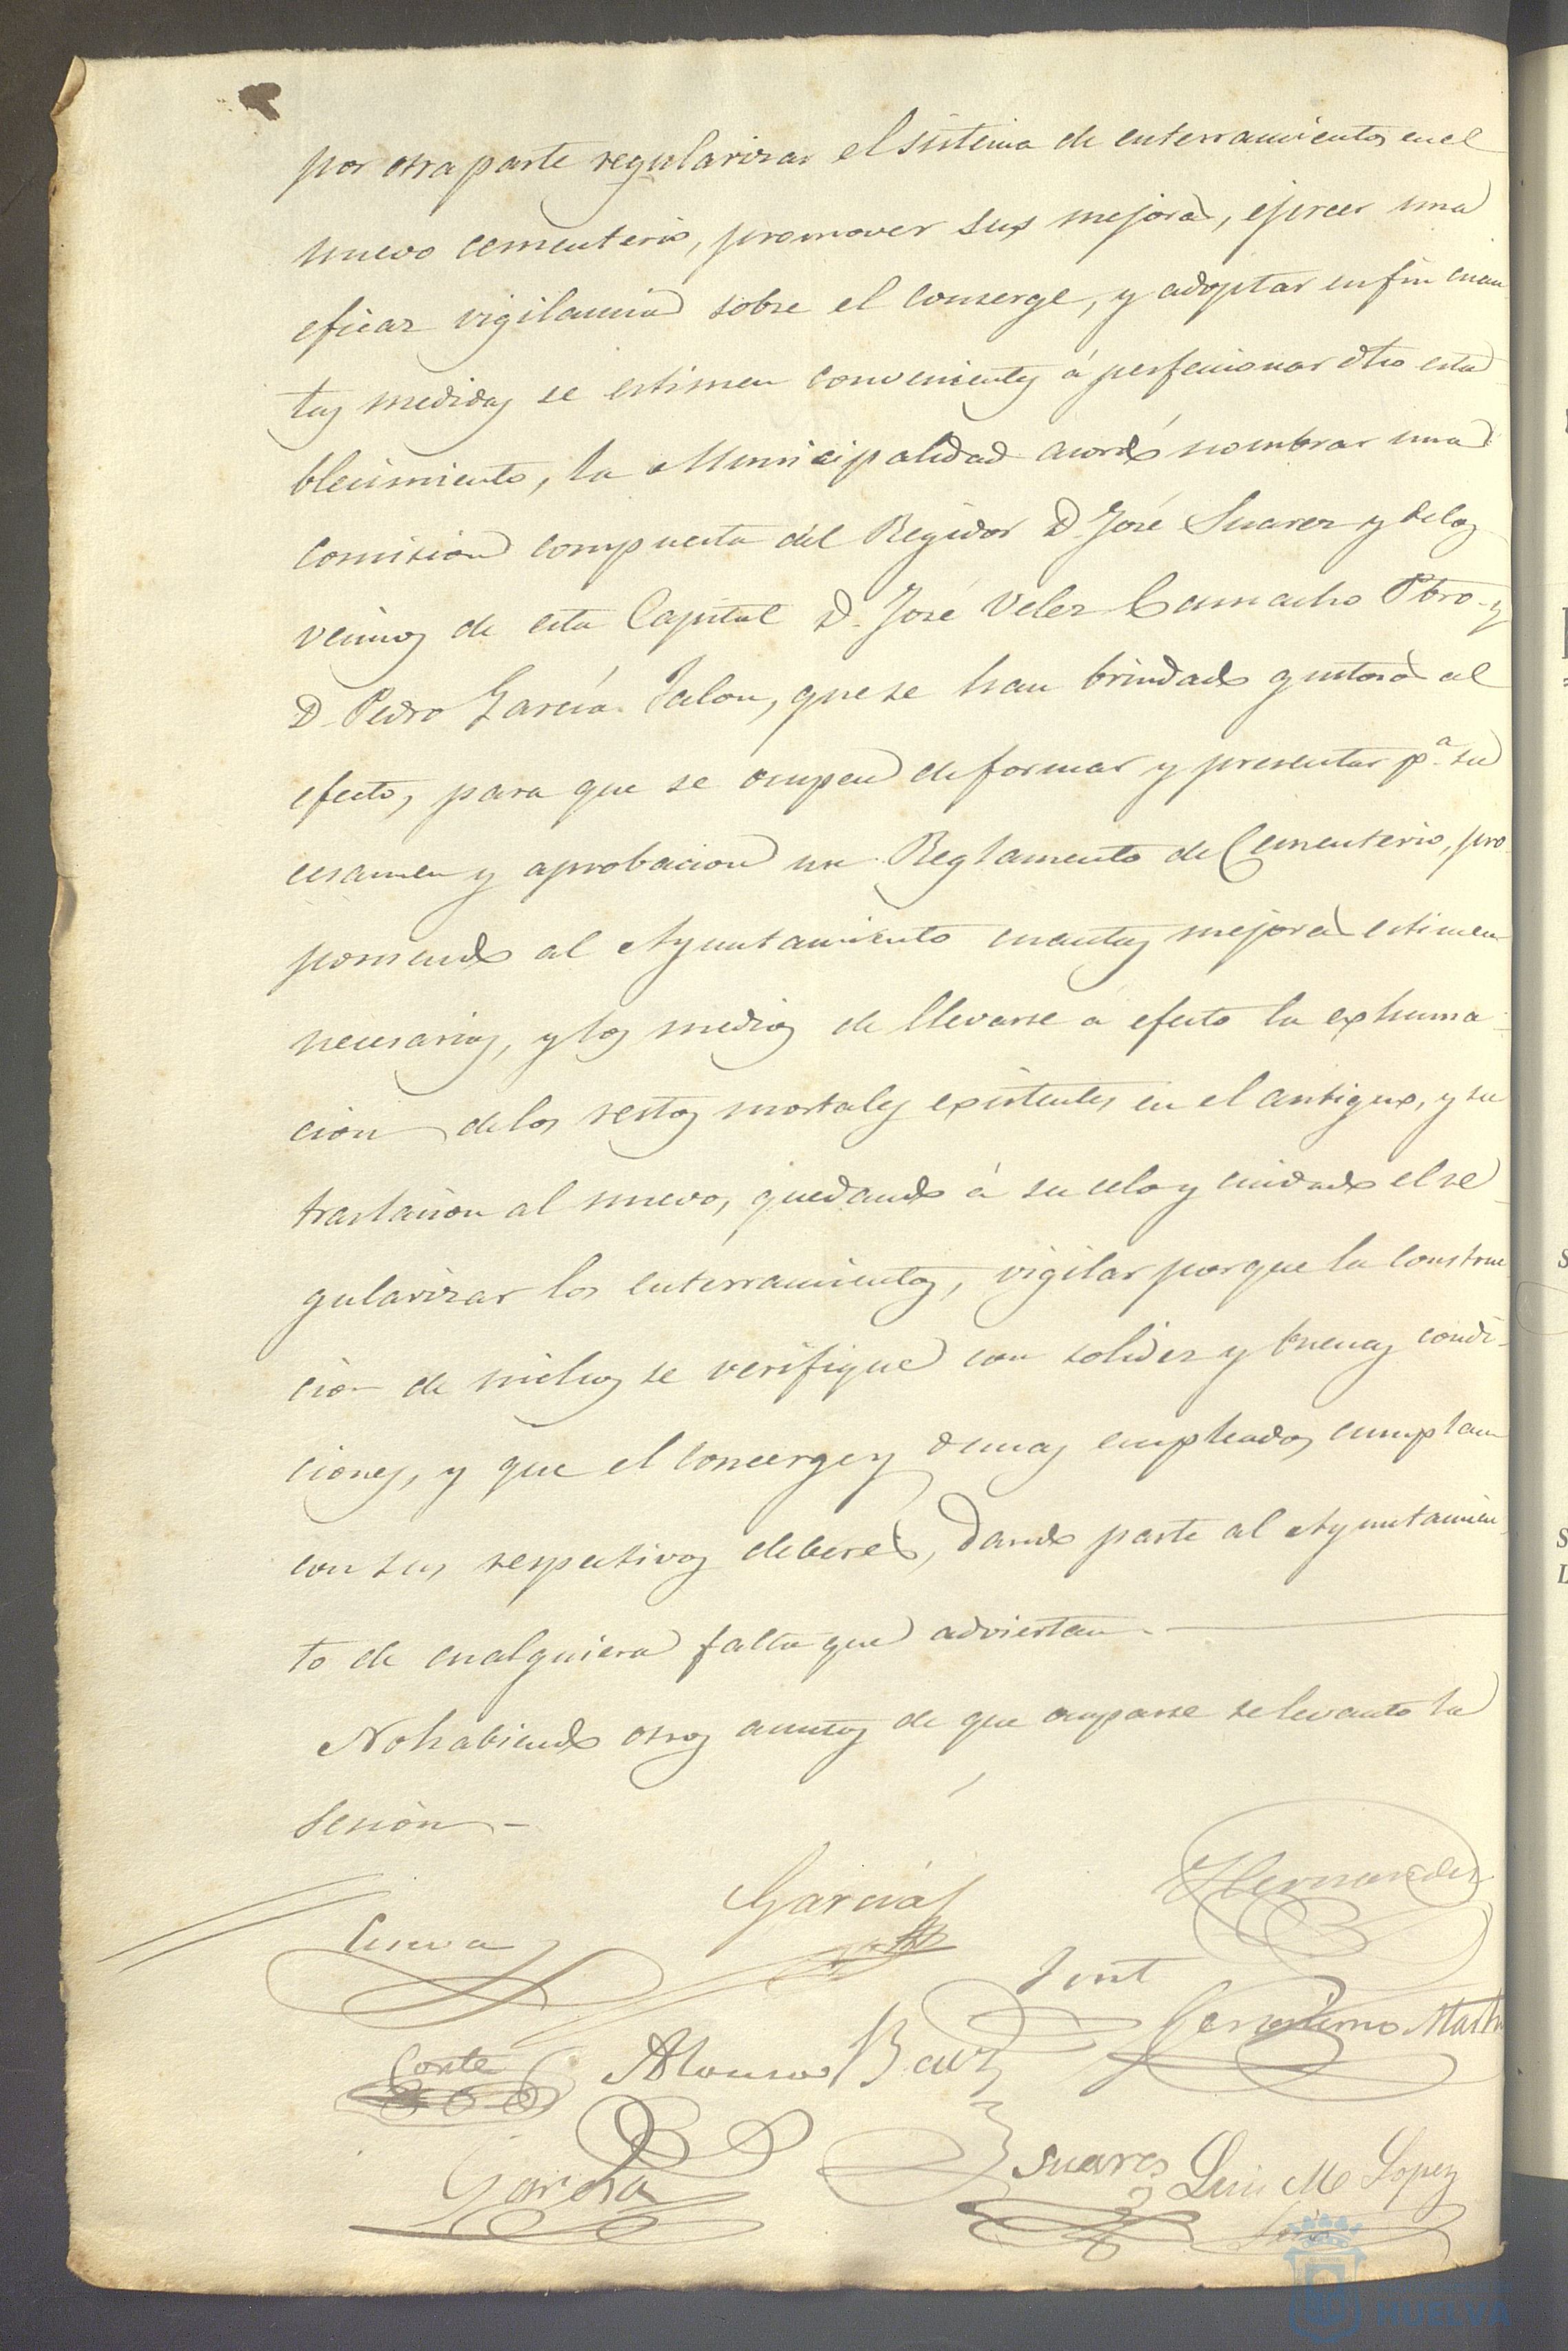 por otra parte regularizar el sistema de enterramientos en el
nuevo cementerio, promover sus mejoras, ejercer una
eficaz vigilancia sobre el conserge, y adoptar en fin cuan
tas medidas se estimen convenientes á perfecionar dho esta
blecimiento, la Municipalidad acordó nombrar una
comision compuesta del Regidor D. José Suarez y de los
vecinos de esta Capital D. José Velez Camacho Pbro. y
D. Pedro García Jalon, que se han brindado gustosos al
efecto, para que se ocupen de formar y presentar pª su
ecsamen y aprobacion un Reglamento de Cementerio, pro
poniendo al Ayuntamiento cuantas mejoras estimen
necesarias, y los medios de llevarse á efecto la exhuma
cion de los restos mortales existentes en el antiguo, y su
traslacion al nuevo, quedando á su celo y cuidado el re
gularizar los enterramientos, vigilar porque la construc
cion de nichos se verifique con solidez y buenas condi-
ciones, y que el concerge y demas empleados cumplan
con sus respectivos deberes, dando parte al Ayuntamien
to de cualquiera falta que adviertan.
No habiendo otros asuntos de que ocuparse se levantó la
sesión -
Cueva García Hernandez
Corte Alonso Jont Geronimo Mart
Garcia Suarez Luis M Lopez
HUELVA